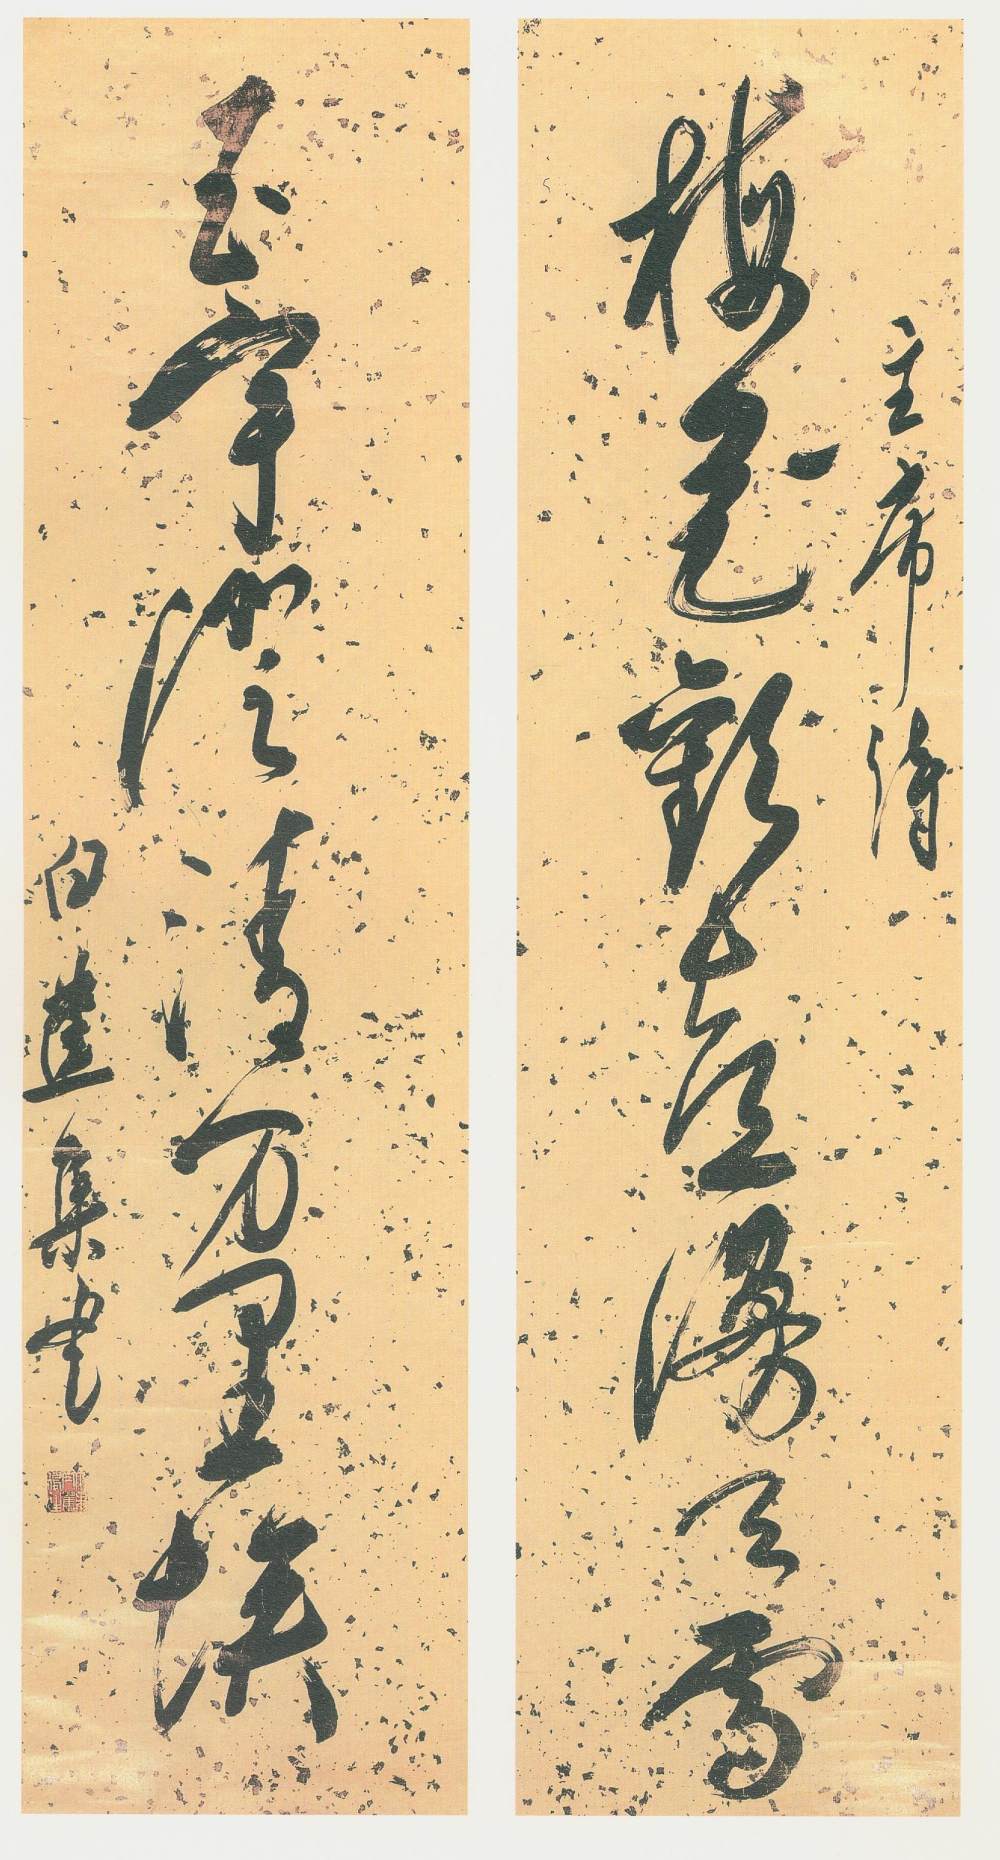 主席詩
梅花歡喜漫天雪
玉宇澄清万里埃
白蕉集書